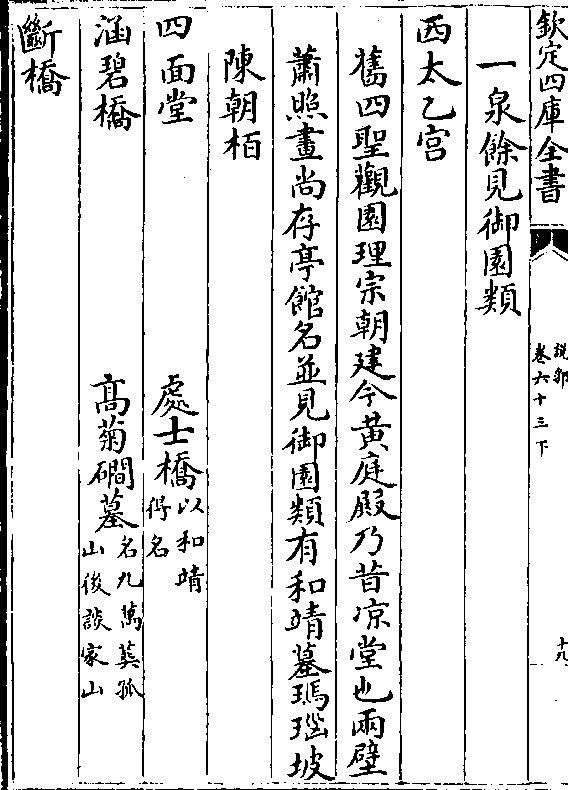 欽定四庫全書
說郛
卷六十三下
十九
一泉餘見御園類
西太乙宫
舊四聖觀園理宗朝建今黄庭殿乃昔凉堂也兩壁
蕭照畫尚存亭館名並見御園類有和靖墓瑪瑙坡
陳朝栢
四面堂　處士橋以和靖得名
涵碧橋　髙菊磵墓名九萬葬孤山後談家山
斷橋